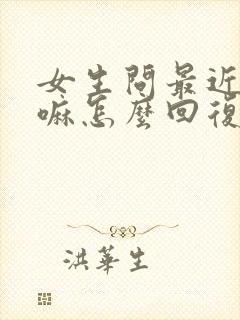 女生問最近
嘛怎麼回復
洪華生